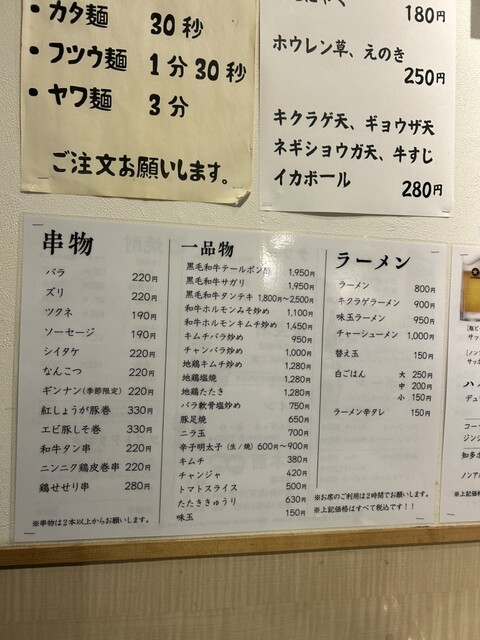 ・カタ麺 30秒
・フツウ麺 1分30秒
・ヤワ麺 3分
ご注文お願いします。
180円
ホウレン草、えのき
250円
キクラゲ天、ギョウザ天
ネギショウガ天、牛すじ
イカボール 280円
串物
バラ 220円
ズリ 220円
ツクネ 190円
ソーセージ 190円
シイタケ 220円
なんこつ 220円
ギンナン(季節限定) 220円
紅しょうが豚巻 330円
エビ豚しそ巻 330円
和牛タン串 220円
ニンニク鶏皮巻串 220円
鶏せせり串 280円
※串物は2本以上からお願いします。
一品物
黒毛和牛テールポン酢 1,950円
黒毛和牛サガリ 1,950円
黒毛和牛タンテキ 1,800円〜2,500円
和牛ホルモンみそ炒め 1,100円
和牛ホルモンキムチ炒め 1,450円
キムチバラ炒め 950円
チャンバラ炒め 1,000円
地鶏キムチ炒め 1,280円
地鶏塩焼 1,280円
地鶏たたき 1,280円
バラ軟骨塩炒め 750円
豚足焼 650円
ニラ玉 700円
辛子明太子(生/焼) 600円〜900円
キムチ 380円
チャンジャ 420円
トマトスライス 500円
たたききゅうり 630円
味玉 150円
ラーメン
ラーメン 800円
キクラゲラーメン 900円
味玉ラーメン 950円
チャーシューメン 1,000円
替え玉 150円
白ごはん 大 250円
中 200円
小 150円
ラーメン辛タレ 150円
※お席のご利用は2時間でお願いします。
※上記価格はすべて税込です!!